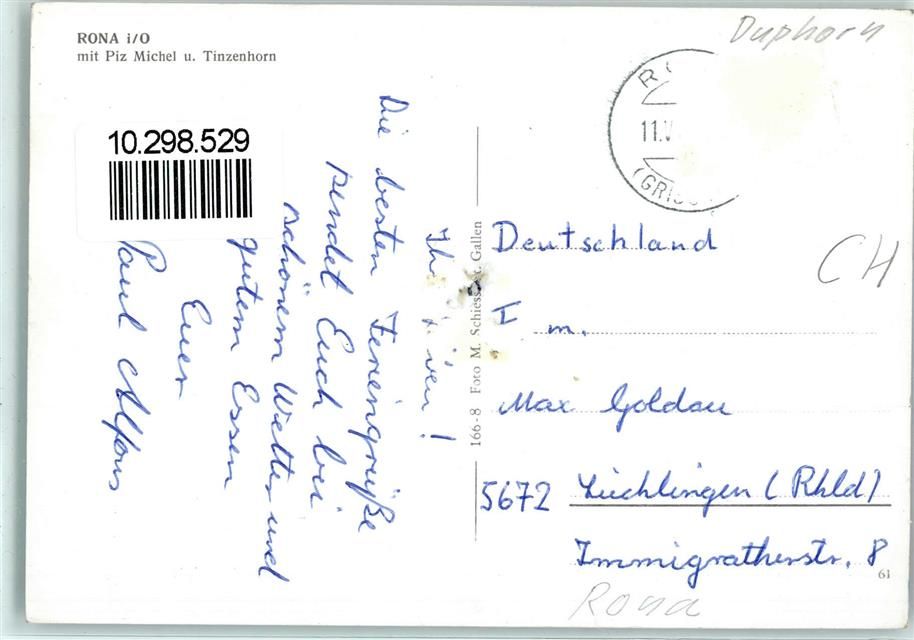 RONA i/O
mit Piz Michel u. Tinzenhorn
10.298.529
Ihr
!
Die besten Feriengrüße
sendet Euch bei
schönem Wetter und
gutem Essen
Euer
Paul Alfons
166-8 Foto M. Schiess, St. Gallen
Duphorn
11.V
(GRI
CH
Deutschland
Max Goldau
5672 Leichlingen (Rhld)
Immigratherstr. 8
61
Rona